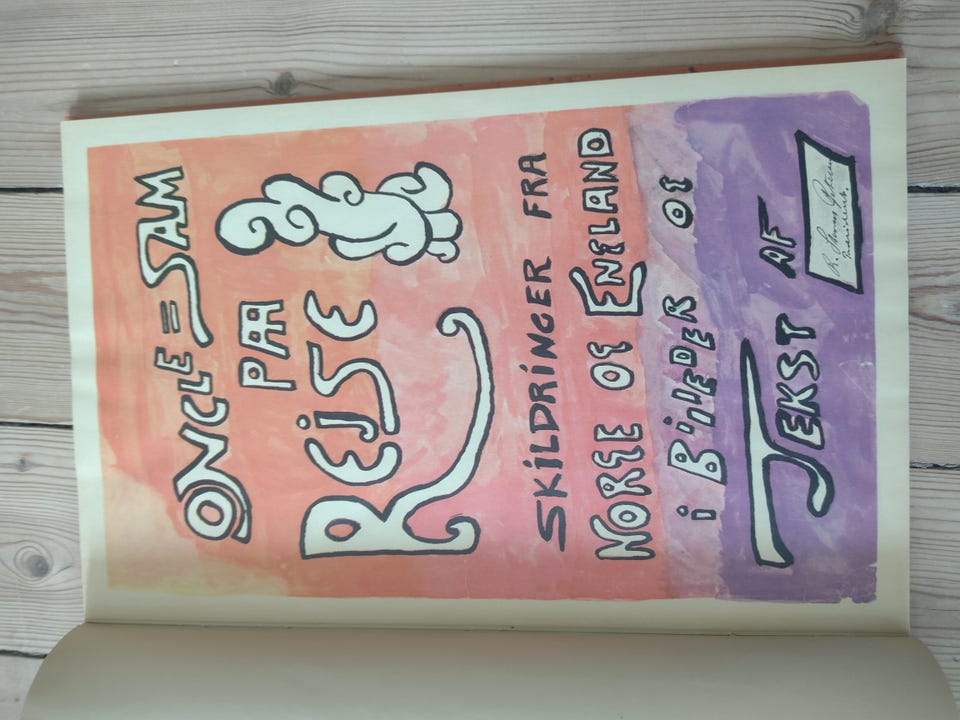 ONCLE=SAM
PAA
REJSE
SKiLDRiNGER FRA
NORGE OG ENGLAND
i BiLLEDER OG
TEKST AF
R. Storm Petersen